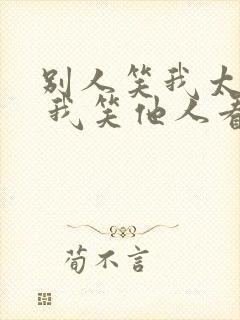 别人笑我太
我笑他人看
荀不言